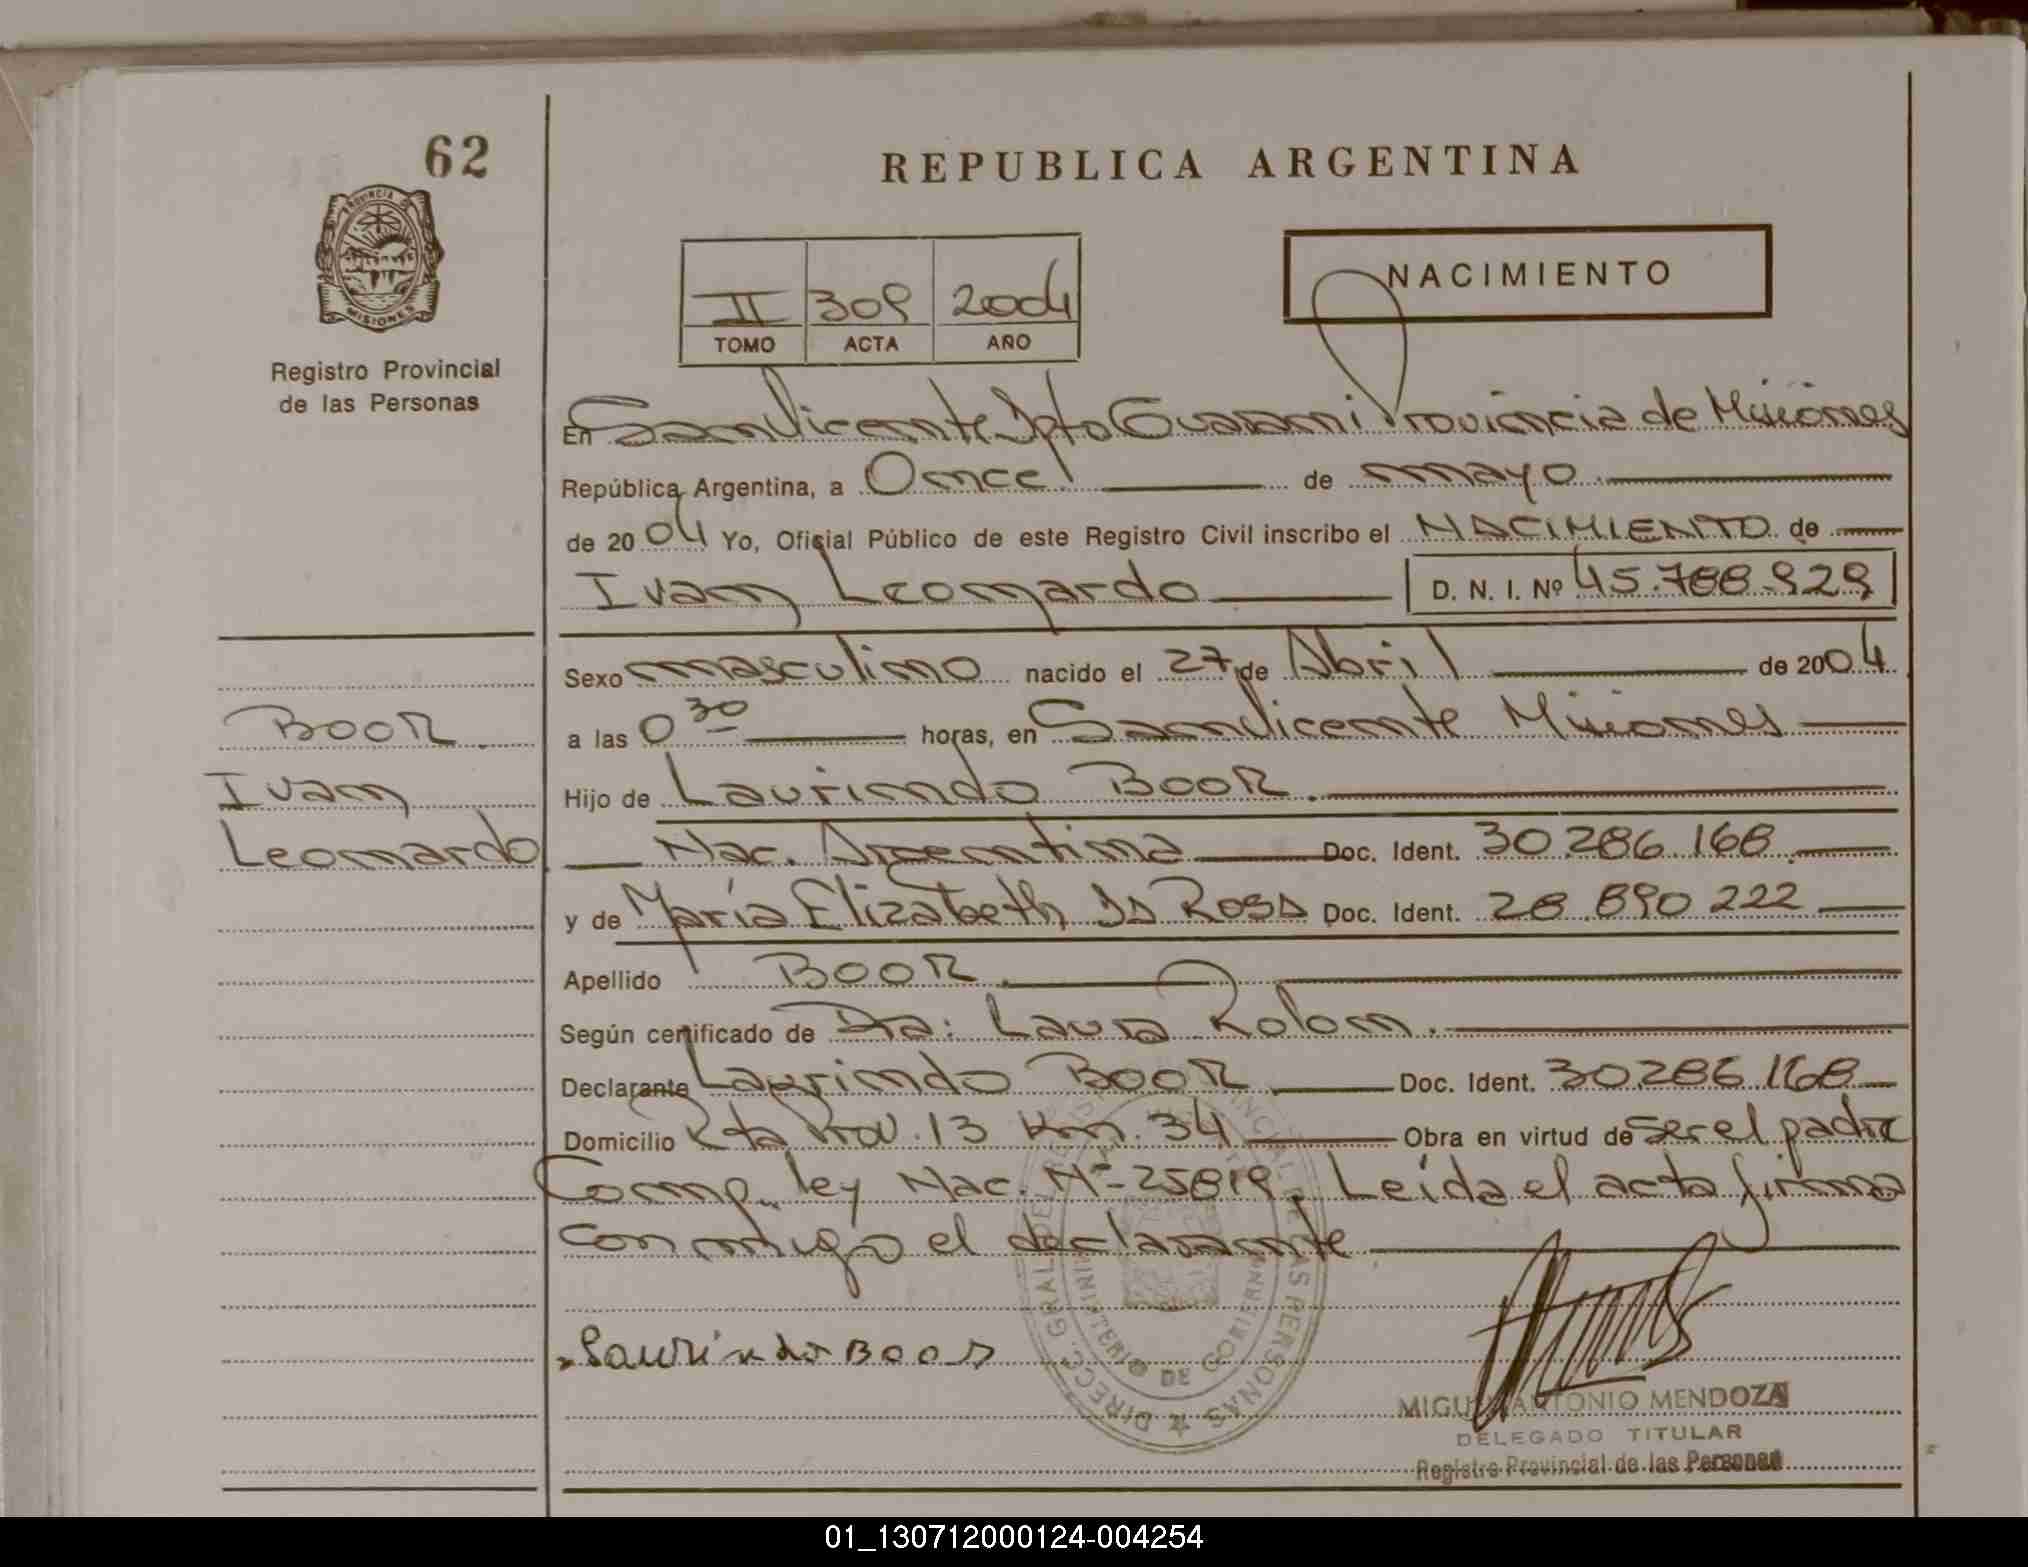 62
REPUBLICA ARGENTINA
PROVINCIA DE
MISIONES
Registro Provincial
de las Personas
II 309 2004
TOMO ACTA AÑO
NACIMIENTO
En San Vicente Dpto Guarani Provincia de Misiones
República Argentina, a Once de mayo
de 2004 Yo, Oficial Público de este Registro Civil inscribo el NACIMIENTO de
Ivan Leonardo D. N. I. Nº 45.788.929
Sexo masculino nacido el 27 de Abril de 2004
a las 0 30 horas, en San Vicente Misiones
Boor
Ivan
Leonardo
Hijo de Laurindo Boor.
Nac. Argentina Doc. Ident. 30.286.168
y de María Elizabeth Da Rosa Doc. Ident. 28.890.222
Apellido Boor
Según certificado de Dra: Laura Rolon.
Declarante Laurindo Boor Doc. Ident. 30.286.168
Domicilio Rta Prov. 13 Km. 34 Obra en virtud de ser el padre
Comp. ley Nac. Nº 25819. Leída el acta firma
conmigo el declarante
Laurindo Boor
DIRECC. GRAL DEL PROVINCIAL DE LAS PERSONAS
MINISTERIO DE GOBIERNO
MIGUEL ANTONIO MENDOZA
DELEGADO TITULAR
Registro Provincial de las Personas
01_130712000124-004254